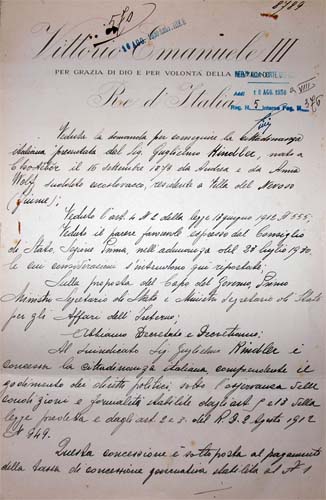 570
8789
18 AGO. 1930
Vittorio Emanuele III
PER GRAZIA DI DIO E PER VOLONTÀ DELLA
Re d'Italia
18 AGO. 1930
Reg. N. 5 Interno Fog. N. 376
Veduta la domanda per conseguire la cittadinanza
italiana presentata dal Sig. Guglielmo Kindler, nato a
il 15 settembre 1870 da Andrea e da Anna
Wolf suddito cecoslovacco, residente a Villa del Nevoso
(Fiume);
Veduto l'art. 4 N. 2 della legge 13 giugno 1912, N. 555;
Veduto il parere favorevole espresso dal Consiglio
di Stato, Sezione Prima, nell'adunanza del 23 luglio 1930,
le cui considerazioni s'intendono qui riportate;
Sulla proposta del Capo del Governo, Primo
Ministro Segretario di Stato e Ministro Segretario di Stato
per gli Affari dell'Interno;
Abbiamo Decretato e Decretiamo;
Al suindicato Sig. Guglielmo Kindler è
concessa la cittadinanza italiana comprendente il
godimento dei diritti politici, sotto l'osservanza delle
condizioni e formalità stabilite dagli art. 5 e 13 della
legge predetta e dagli art. 2 e 3 del R.D. 2 Agosto 1912
N. 949.
Questa concessione è sottoposta al pagamento
della tassa di concessione governativa stabilita al N. 1